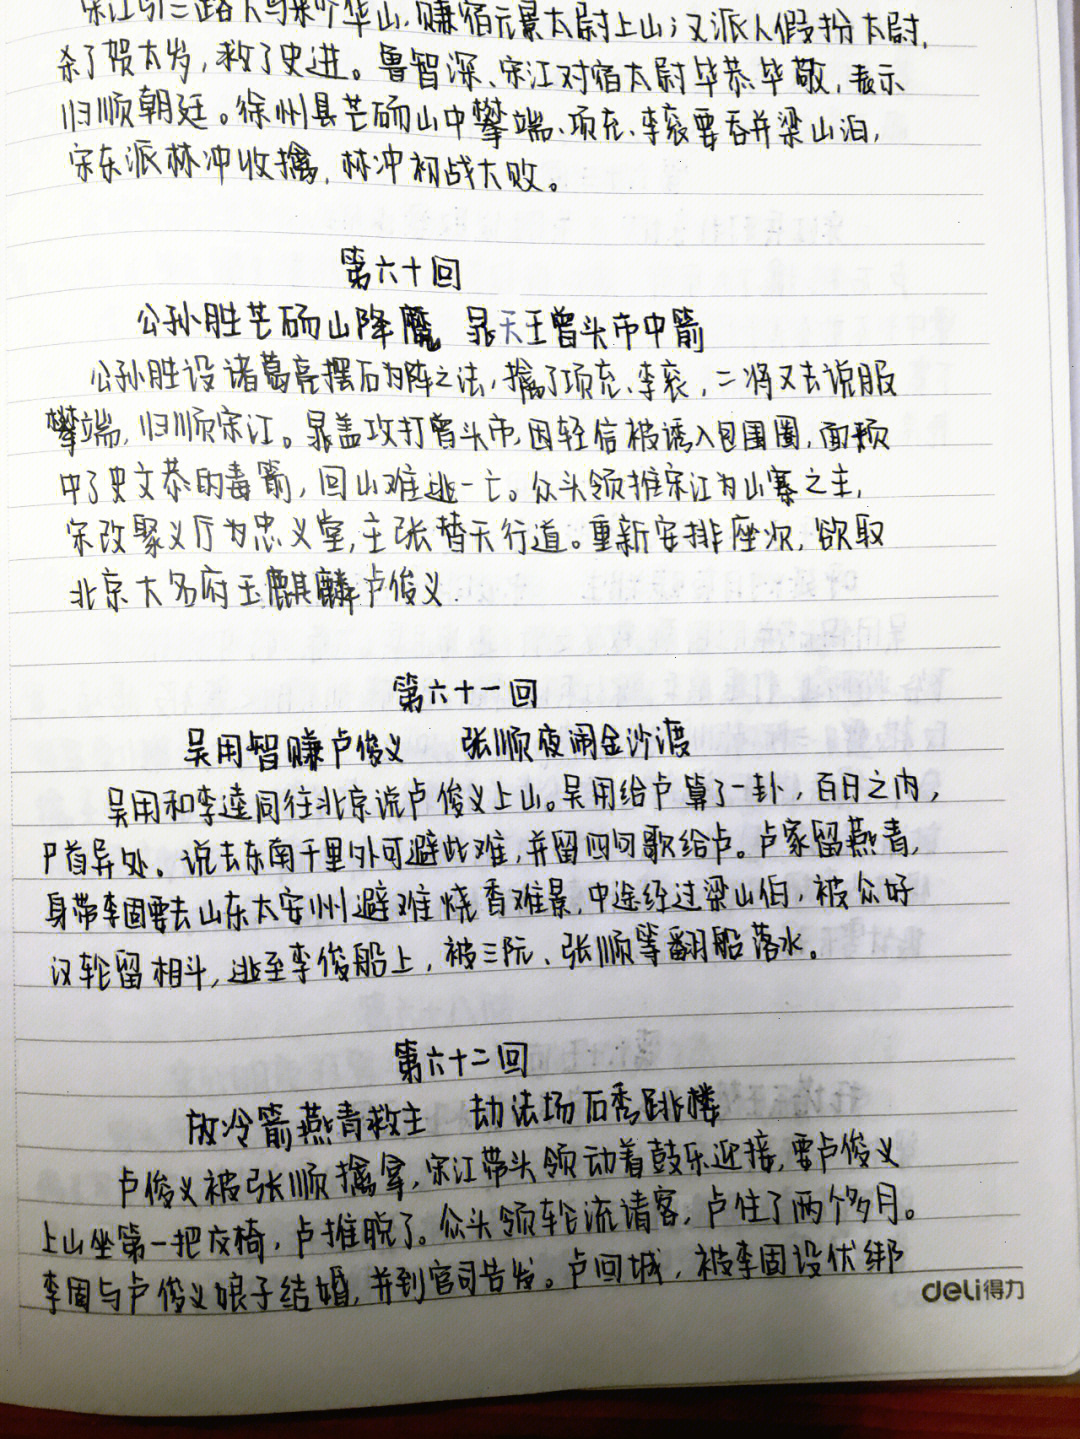 宋江引三路人马来个华山，赚宿元景太尉上山；又派人假扮太尉，
杀了贺太岁，救了史进。鲁智深、宋江对宿太尉毕恭毕敬，表示
归顺朝廷。徐州县芒砀山中攀端、项充、李衮要吞并梁山泊，
宋东派林冲收擒，林冲初战大败。
第六十回
公孙胜芒砀山降魔 晁天王曾头市中箭
公孙胜设诸葛亮摆石为阵之法，擒了项充、李衮，二将又去说服
攀端，归顺宋江。晁盖攻打曾头市，因轻信被诱入包围圈，面颊
中了史文恭的毒箭，回山难逃一亡。众头领推宋江为山寨之主，
宋改聚义厅为忠义堂，主张替天行道。重新安排座次，欲取
北京大名府玉麒麟卢俊义.
第六十一回
吴用智赚卢俊义 张顺夜闹金沙渡
吴用和李逵同往北京说卢俊义上山。吴用给卢算了一卦，百日之内，
尸首异处。说去东南千里外可避此难，并留四句歌给卢。卢家留燕青，
身带李固要去山东太安州避难烧香难景，中途经过梁山伯，被众好
汉轮留相斗，逃至李俊船上，被三阮、张顺等翻船落水。
第六十二回
放冷箭燕青救主 劫法场石秀跳楼
卢俊义被张顺擒拿，宋江带头领动着鼓乐迎接，要卢俊义
上山坐第一把交椅，卢推脱了。众头领轮流请客，卢住了两个多月。
李固与卢俊义娘子结婚，并到官司告发。卢回城，被李固设伏绑
deli得力